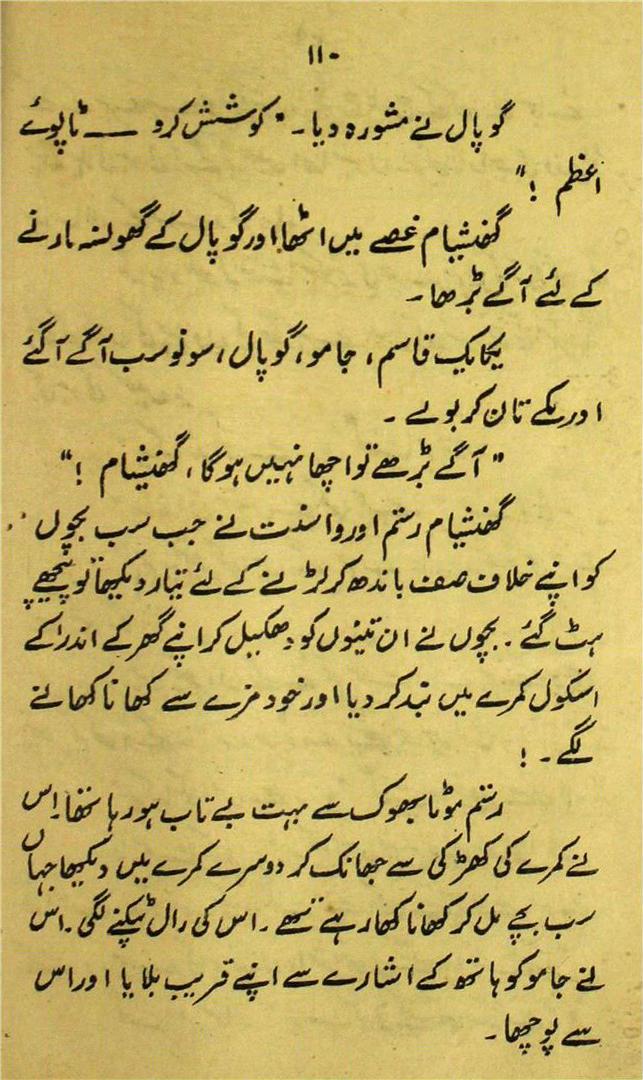 ۱۱۰
گوپال نے مشورہ دیا۔ "کوشش کرو —— ٹاپوئے
اعظم !"
گھنشیام غصے میں اٹھا اور گوپال کے گھونسہ مارنے
کے لئے آگے بڑھا۔
یکایک قاسم، جامو، گوپال، سونو سب آگے آگئے
اور مکے تان کر بولے ۔
"آگے بڑھے تو اچھا نہیں ہوگا، گھنشیام !"
گھنشیام رستم اور واسنت نے جب سب بچوں
کو اپنے خلاف صف باندھ کر لڑنے کے لئے تیار دیکھا تو پیچھے
ہٹ گئے ۔ بچوں نے ان تینوں کو دھکیل کر اپنے گھر کے اندر کے
اسکول کمرے میں بند کر دیا اور خود مزے سے کھانا کھانے
لگے ۔ !
رستم موٹا بھوک سے بہت بے تاب ہو رہا تھا۔ اس
نے کمرے کی کھڑکی سے جھانک کر دوسرے کمرے میں دیکھا جہاں
سب بچے مل کر کھانا کھا رہے تھے ۔ اس کی رال ٹپکنے لگی ۔ اس
نے جامو کو ہاتھ کے اشارے سے اپنے قریب بلایا اور اس
سے پوچھا۔